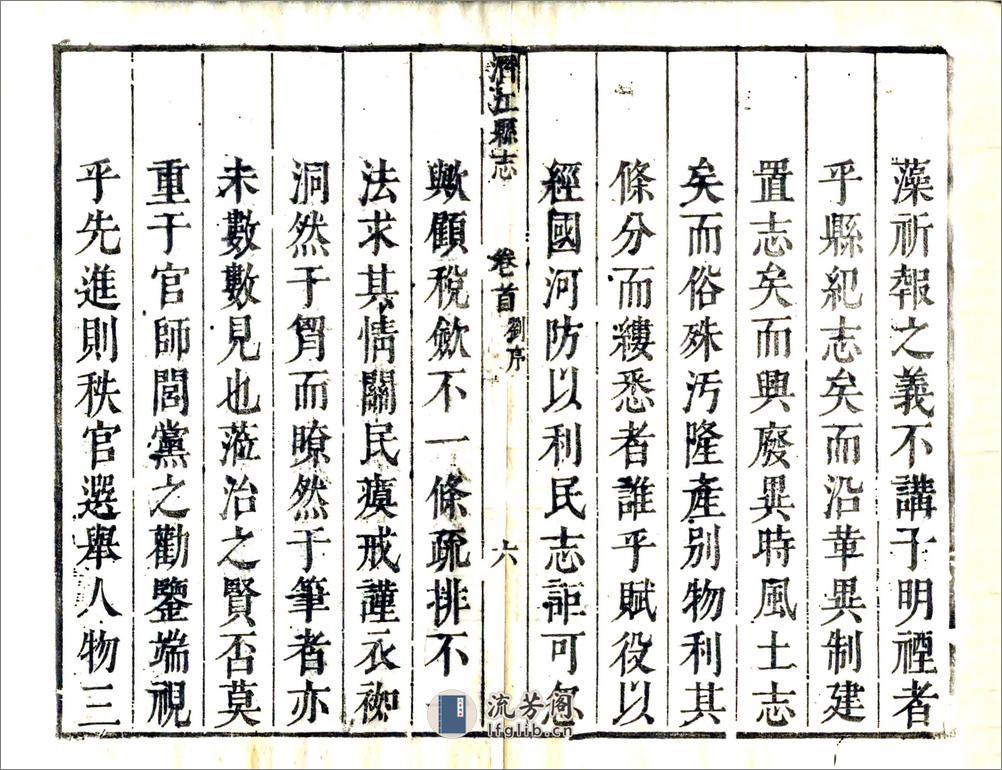 藻祈報之義不講于明禋者
乎縣紀志矣而沿革異制建
置志矣而興廢異時風土志
矣而俗殊汚隆產別物利其
條分而縷悉者誰乎賦役以
經國河防以利民志詎可忽
潛江縣志
卷首
劉序
六
歟顧稅斂不一條疏排不一
法求其情關民瘼戒謹衣袽
洞然于胷而暸然于筆者亦
未數數見也蒞治之賢否莫
重于官師閭黨之勸鑒端視
乎先進則秩官選舉人物三
流芳阁
lfglib.cn